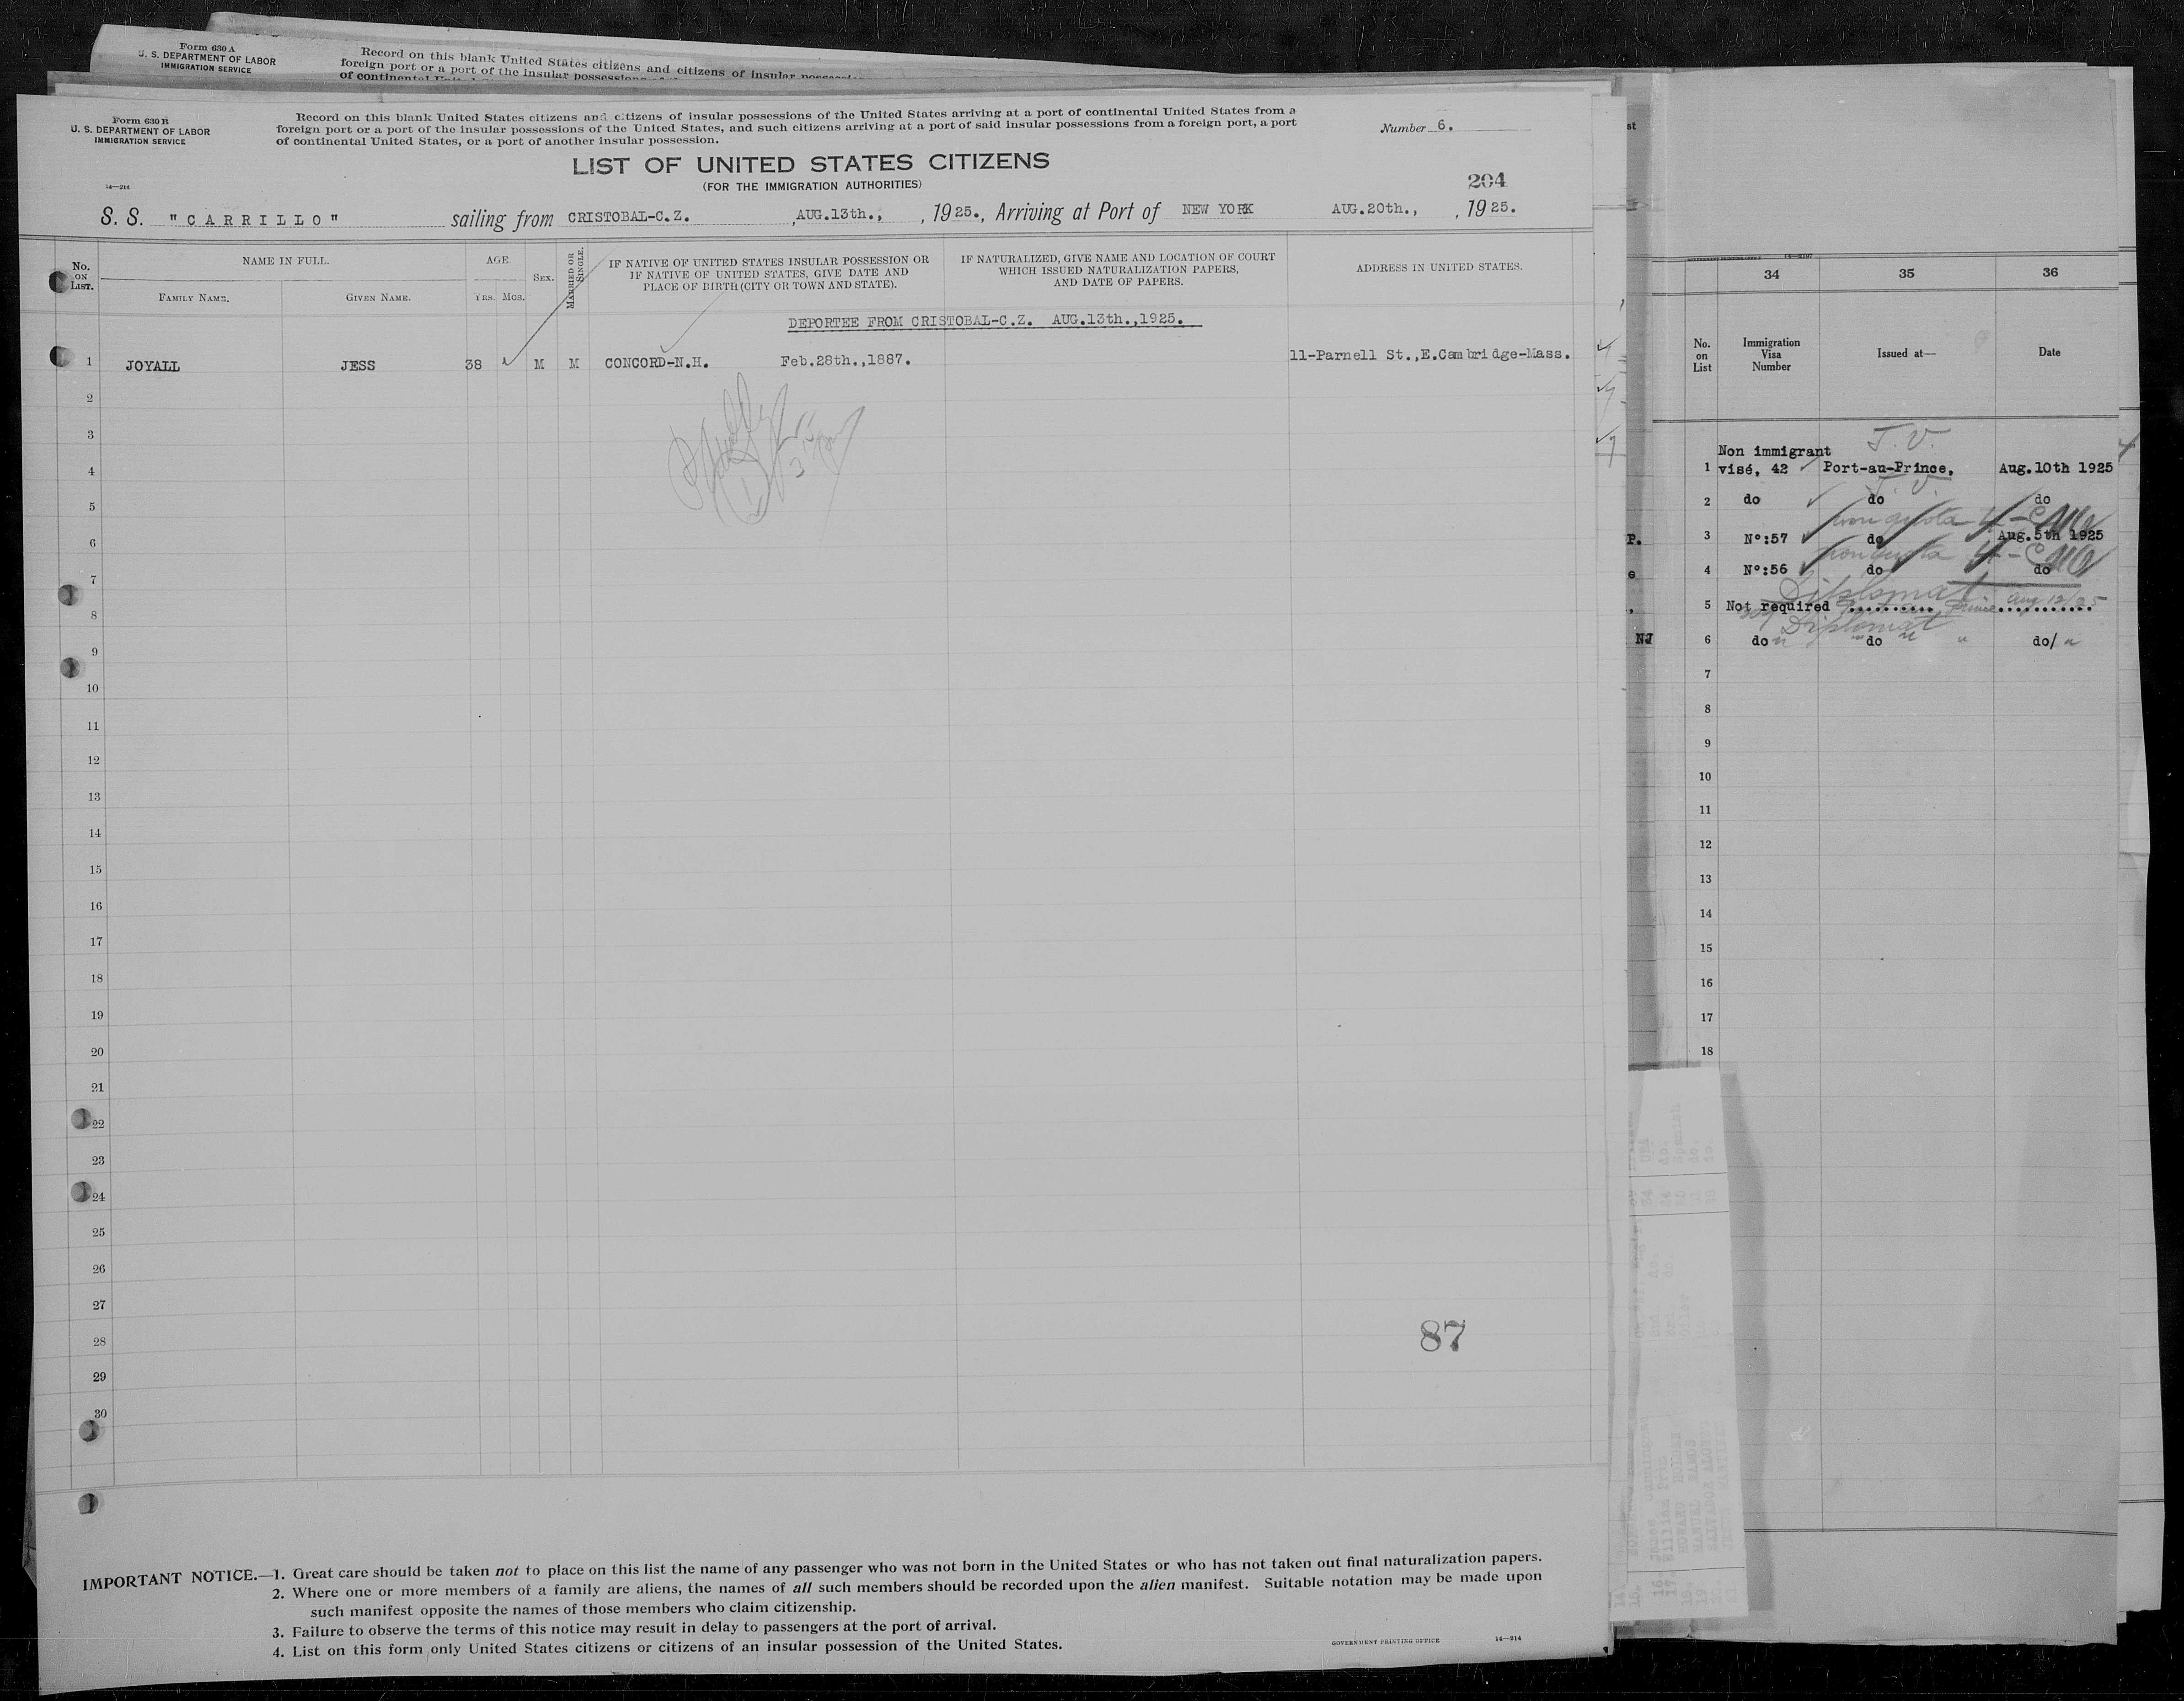 Form 630 A
U. S. DEPARTMENT OF LABOR
IMMIGRATION SERVICE
Record on this blank United States citizens and citizens of insular
foreign port or a port of the insular possessions
of continental
Form 630 B
U. S. DEPARTMENT OF LABOR
IMMIGRATION SERVICE
14—214
Record on this blank United States citizens and citizens of insular possessions of the United States arriving at a port of continental United States from a
foreign port or a port of the insular possessions of the United States, and such citizens arriving at a port of said insular possessions from a foreign port, a port
of continental United States, or a port of another insular possession.
Number 6.
LIST OF UNITED STATES CITIZENS
(FOR THE IMMIGRATION AUTHORITIES)
204
S. S. "CARRILLO" sailing from CRISTOBAL-C.Z. , AUG.13th., , 1925., Arriving at Port of NEW YORK AUG.20th., , 1925.
No. ON LIST.
NAME IN FULL.
FAMILY NAME.
GIVEN NAME.
AGE.
YRS. MOS.
SEX.
MARRIED OR SINGLE.
IF NATIVE OF UNITED STATES INSULAR POSSESSION OR
IF NATIVE OF UNITED STATES, GIVE DATE AND
PLACE OF BIRTH (CITY OR TOWN AND STATE).
IF NATURALIZED, GIVE NAME AND LOCATION OF COURT
WHICH ISSUED NATURALIZATION PAPERS,
AND DATE OF PAPERS.
ADDRESS IN UNITED STATES.
DEPORTEE FROM CRISTOBAL-C.Z. AUG.13th.,1925.
1 JOYALL JESS 38 M M CONCORD-N.H. Feb.28th.,1887. 11-Parnell St.,E.Cambridge-Mass.
2
3
4
5
6
7
8
9
10
11
12
13
14
15
16
17
18
19
20
21
22
23
24
25
26
27
28
29
30
87
IMPORTANT NOTICE.—1. Great care should be taken not to place on this list the name of any passenger who was not born in the United States or who has not taken out final naturalization papers.
2. Where one or more members of a family are aliens, the names of all such members should be recorded upon the alien manifest. Suitable notation may be made upon
such manifest opposite the names of those members who claim citizenship.
3. Failure to observe the terms of this notice may result in delay to passengers at the port of arrival.
4. List on this form only United States citizens or citizens of an insular possession of the United States.
GOVERNMENT PRINTING OFFICE 14—214
34 35 36
No. on List
Immigration Visa Number
Issued at—
Date
T. V.
Non immigrant
1 visé, 42 Port-au-Prince, Aug.10th 1925
T. V.
2 do do do
non quota 4-
3 Nº:57 do Aug.5th 1925
non quota 4-
4 Nº:56 do do
Diplomat
5 Not required Prince Aug 12/25
Diplomat
6 do do do/
7
8
9
10
11
12
13
14
15
16
17
18
P.
e
,
NJ